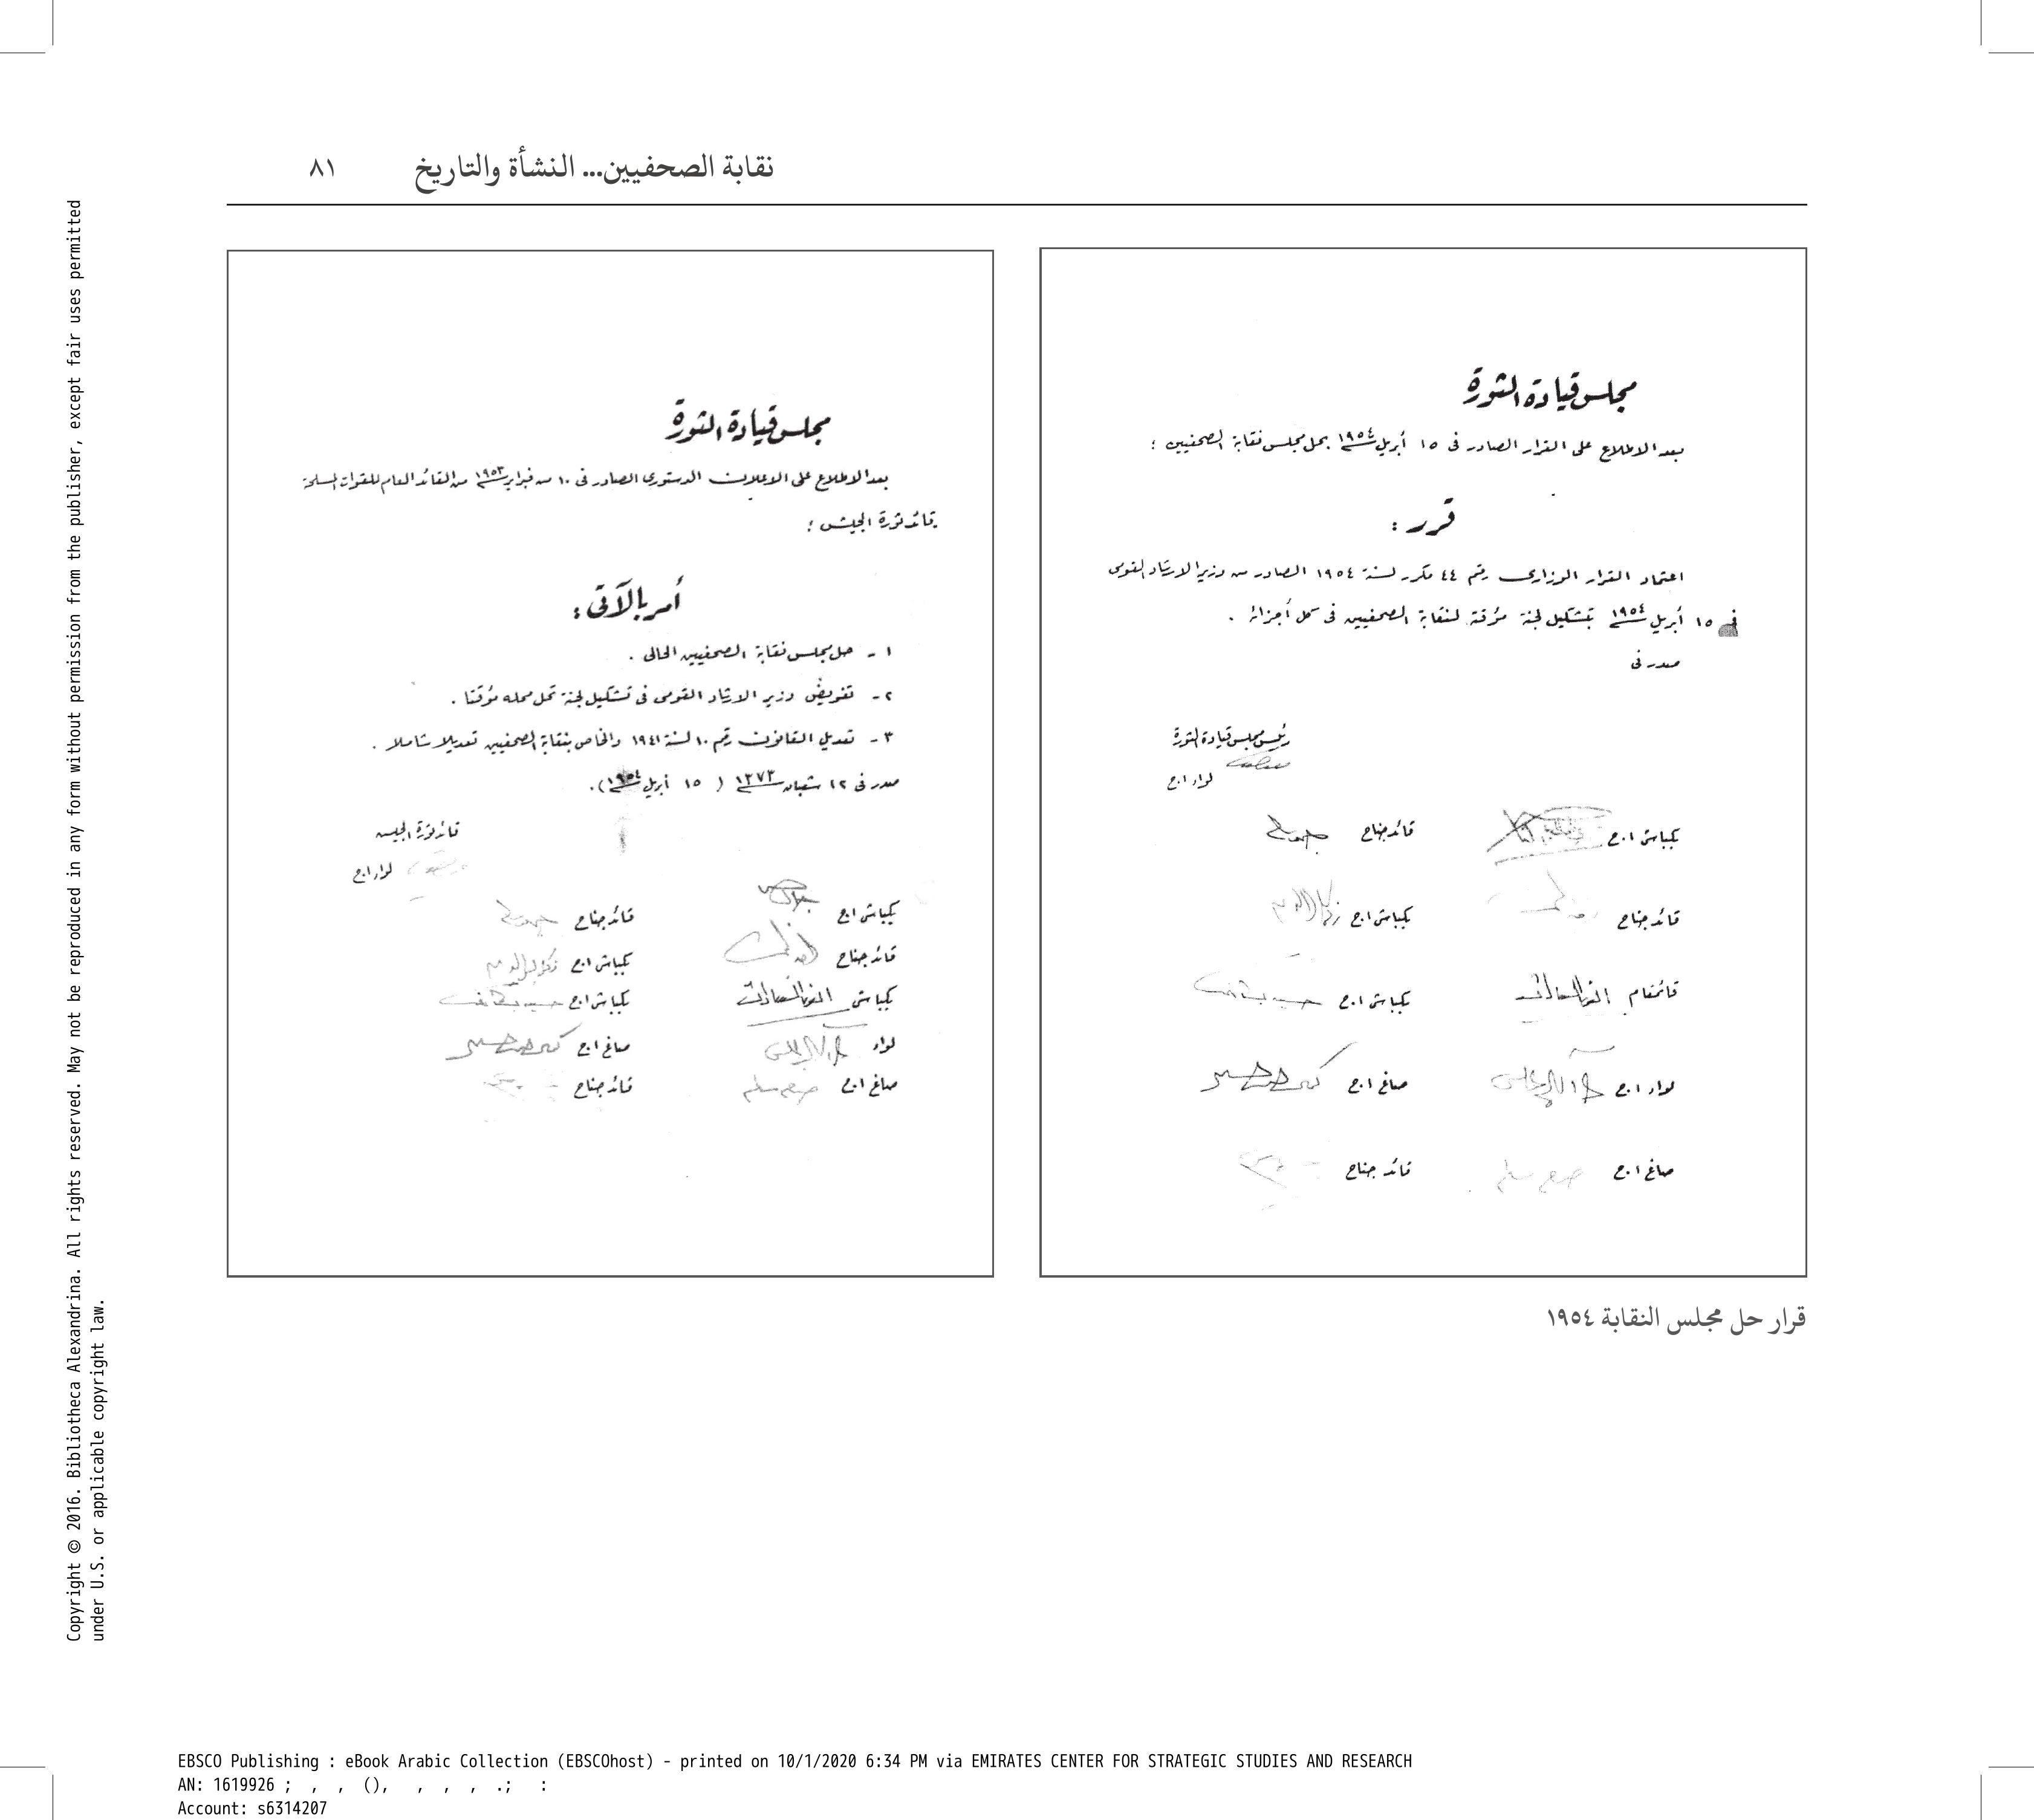 نقابة الصحفيين... النشأة والتاريخ ٨١
مجلس قيادة الثورة
بعد الاطلاع على القرار الصادر فى ١٥ أبريل ١٩٥٤ بحل مجلس نقابة الصحفيين ؛
قرر :
اعتماد القرار الوزارى رقم ٤٤ مكرر لسنة ١٩٥٤ الصادر من وزير الارشاد القومى
فى ١٥ أبريل ١٩٥٤ بتشكيل لجنة مؤقتة لنقابة الصحفيين فى كل أجزائه .
صدر فى
رئيس مجلس قيادة الثورة
لواء ا.ح
بكباشى ا.ح قائد جناح
قائد جناح بكباشى ا.ح
قائمقام بكباشى ا.ح
لواء ا.ح صاغ ا.ح
صاغ ا.ح قائد جناح
مجلس قيادة الثورة
بعد الاطلاع على الاعلان الدستورى الصادر فى ١٠ من فبراير ١٩٥٣ من القائد العام للقوات المسلحة
وقائد ثورة الجيش ؛
أمر بالآتى :
١ - حل مجلس نقابة الصحفيين الحالى .
٢ - تفويض وزير الارشاد القومى فى تشكيل لجنة تحل محله مؤقتا .
٣ - تعديل القانون رقم ١٠ لسنة ١٩٤١ والخاص بنقابة الصحفيين تعديلا شاملا .
صدر فى ١٢ شعبان ١٣٧٣ ( ١٥ أبريل ١٩٥٤ ).
قائد ثورة الجيش
لواء ا.ح
بكباشى ا.ح قائد جناح
قائد جناح بكباشى ا.ح
بكباشى بكباشى ا.ح
لواء صاغ ا.ح
صاغ ا.ح قائد جناح
قرار حل مجلس النقابة ١٩٥٤
Copyright © 2016. Bibliotheca Alexandrina. All rights reserved. May not be reproduced in any form without permission from the publisher, except fair uses permitted
under U.S. or applicable copyright law.
EBSCO Publishing : eBook Arabic Collection (EBSCOhost) - printed on 10/1/2020 6:34 PM via EMIRATES CENTER FOR STRATEGIC STUDIES AND RESEARCH
AN: 1619926 ; , , (), , , , .; :
Account: s6314207